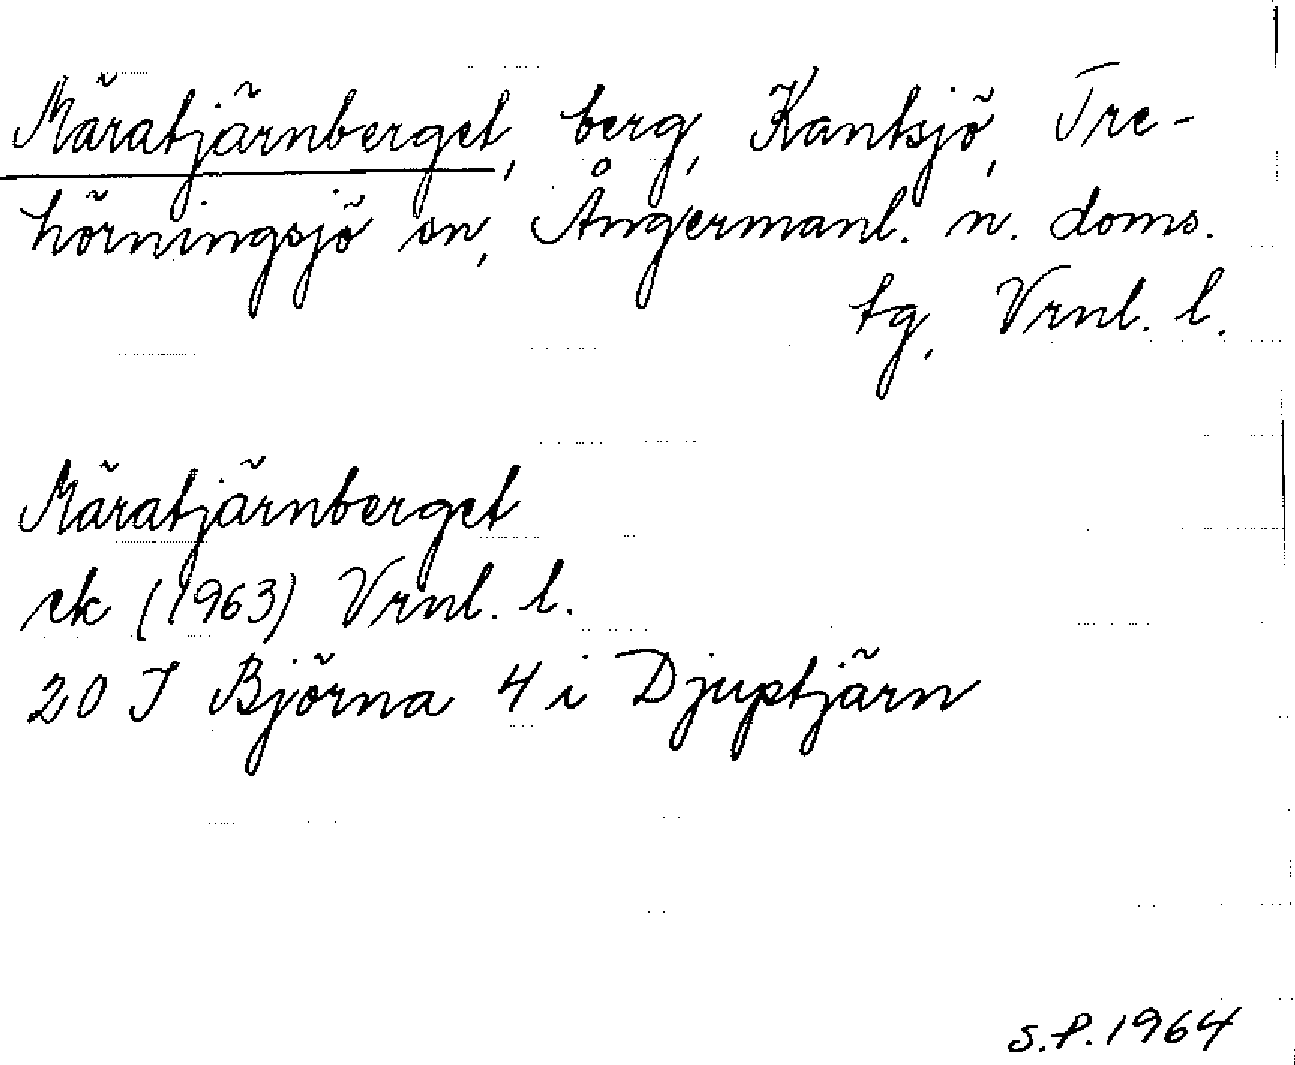 Märatjärnberget, berg, Kantsjö, Tre-
hörningsjö sn, Ångermanl. n. doms.
tg, Vrnl. l.
Märatjärnberget
ek (1963) Vrnl. l.
20 I Björna 4 i Djuptjärn
S.P. 1964